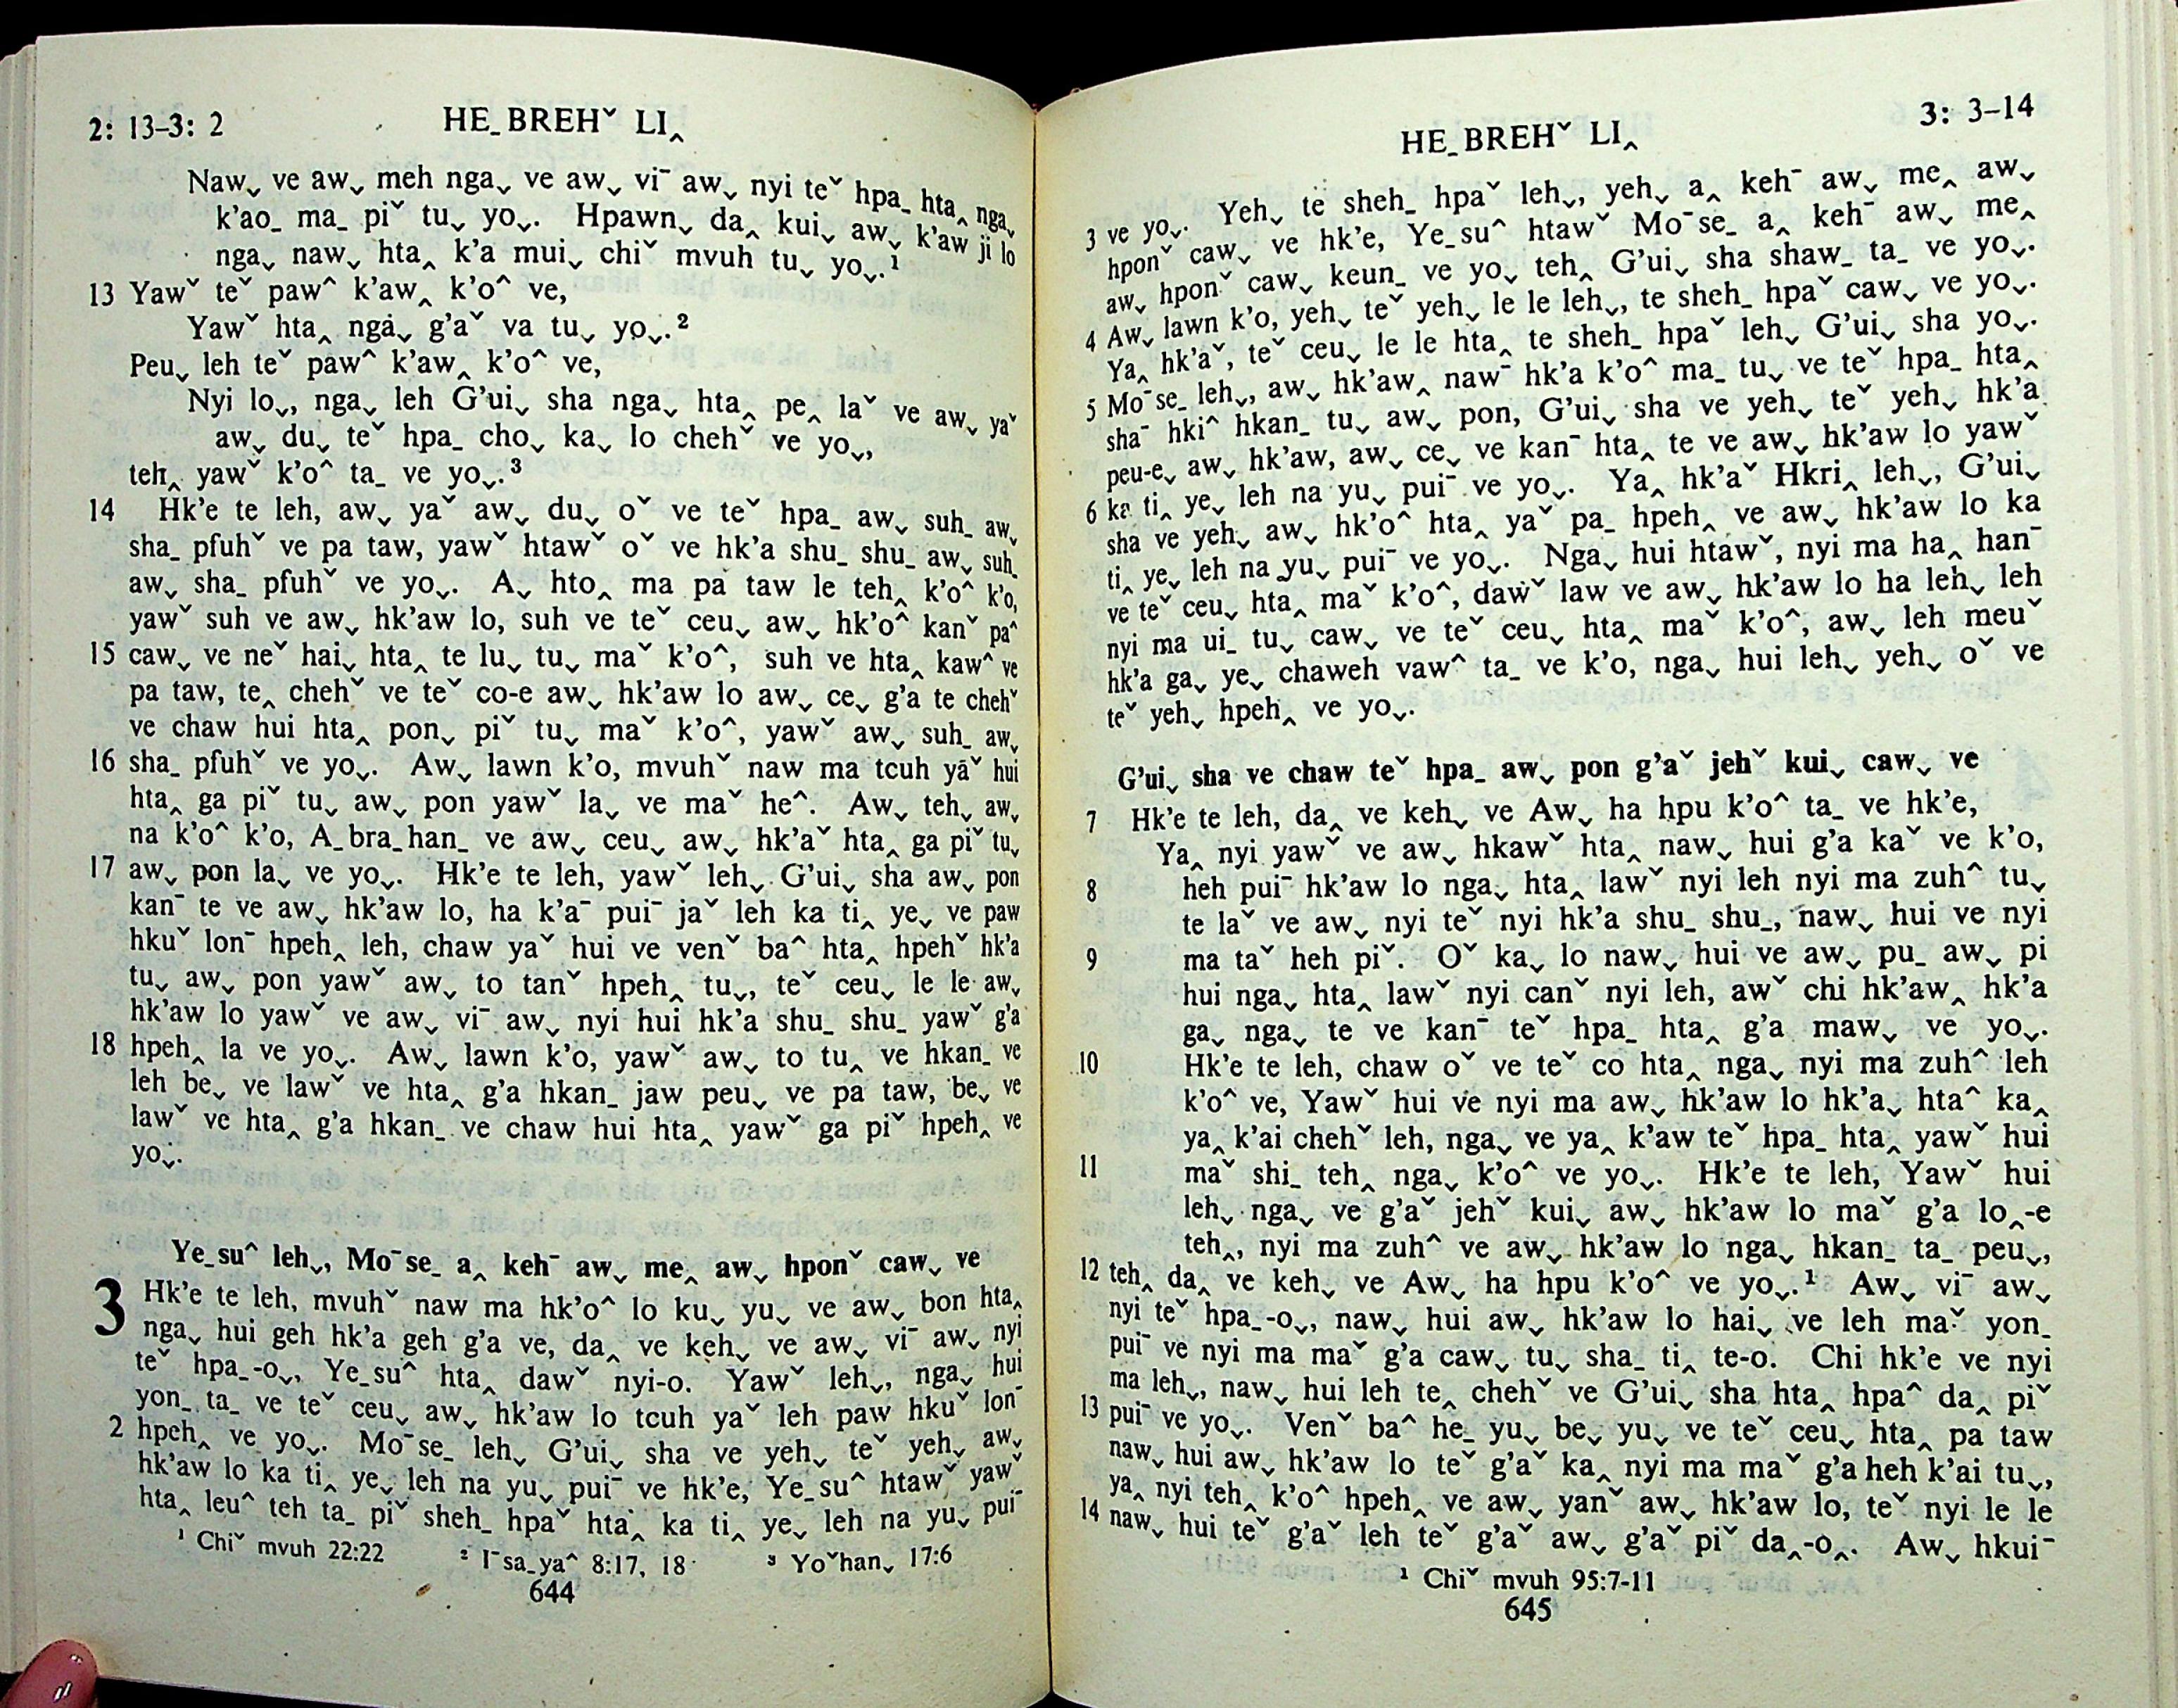 2: 13–3: 2
HE_ BREHˇ LI‸
Naw˯ ve aw˯ meh nga˯ ve aw˯ viˉ aw˯ nyi teˇ hpa_ hta‸ nga˯
k'ao_ ma_ piˇ tu˯ yo˯. Hpawn˯ da‸ kui˯ aw˯ k'aw ji lo
nga˯ naw˯ hta‸ k'a mui˯ chiˇ mvuh tu˯ yo˯.¹
13 Yawˇ teˇ paw^ k'aw‸ k'o^ ve,
Yawˇ hta‸ nga˯ g'aˇ va tu˯ yo˯.²
Peu˯ leh teˇ paw^ k'aw‸ k'o^ ve,
Nyi lo˯, nga˯ leh G'ui˯ sha nga˯ hta‸ pe‸ laˇ ve aw˯ yaˇ
aw˯ du˯ teˇ hpa_ cho˯ ka˯ lo chehˇ ve yo˯,
teh‸ yawˇ k'o^ ta_ ve yo˯.³
14 Hk'e te leh, aw˯ yaˇ aw˯ du˯ oˇ ve teˇ hpa_ aw˯ suh_ aw˯
sha_ pfuhˇ ve pa taw, yawˇ htawˇ oˇ ve hk'a shu_ shu_ aw˯ suh_
aw˯ sha_ pfuhˇ ve yo˯. A˯ hto‸ ma pa taw le teh‸ k'o^ k'o,
yawˇ suh ve aw˯ hk'aw lo, suh ve teˇ ceu˯ aw˯ hk'o^ kanˇ pa^
15 caw˯ ve neˇ hai˯ hta‸ te lu˯ tu˯ maˇ k'o^, suh ve hta‸ kaw^ ve
pa taw, te‸ chehˇ ve teˇ co-e aw˯ hk'aw lo aw˯ ce˯ g'a te chehˇ
ve chaw hui hta‸ pon˯ piˇ tu˯ maˇ k'o^, yawˇ aw˯ suh_ aw˯
16 sha_ pfuhˇ ve yo˯. Aw˯ lawn k'o, mvuhˇ naw ma tcuh yaˇ hui
hta‸ ga piˇ tu˯ aw˯ pon yawˇ la˯ ve maˇ he^. Aw˯ teh˯ aw˯
na k'o^ k'o, A_bra_han_ ve aw˯ ceu˯ aw˯ hk'aˇ hta‸ ga piˇ tu˯
17 aw˯ pon la˯ ve yo˯. Hk'e te leh, yawˇ leh˯ G'ui˯ sha aw˯ pon
kanˉ te ve aw˯ hk'aw lo, ha k'aˉ puiˉ jaˇ leh ka ti‸ ye˯ ve paw
hkuˇ lonˉ hpeh‸ leh, chaw yaˇ hui ve venˇ ba^ hta‸ hpehˇ hk'a
tu˯ aw˯ pon yawˇ aw˯ to tanˇ hpeh‸ tu˯, teˇ ceu˯ le le aw˯
hk'aw lo yawˇ ve aw˯ viˉ aw˯ nyi hui hk'a shu_ shu_ yawˇ g'a
18 hpeh‸ la ve yo˯. Aw˯ lawn k'o, yawˇ aw˯ to tu‸ ve hkan_ ve
leh be˯ ve lawˇ ve hta‸ g'a hkan_ jaw peu˯ ve pa taw, be˯ ve
lawˇ ve hta‸ g'a hkan_ ve chaw hui hta‸ yawˇ ga piˇ hpeh‸ ve
yo˯.
Ye_su^ leh˯, Moˉse_ a‸ kehˉ aw˯ me‸ aw˯ hponˇ caw˯ ve
3 Hk'e te leh, mvuhˇ naw ma hk'o^ lo ku˯ yu˯ ve aw˯ bon hta‸
nga˯ hui geh hk'a geh g'a ve, da‸ ve keh˯ ve aw˯ viˉ aw˯ nyi
teˇ hpa_-o˯, Ye_su^ hta‸ dawˇ nyi-o. Yawˇ leh˯, nga˯ hui
yon_ ta_ ve teˇ ceu˯ aw˯ hk'aw lo tcuh yaˇ leh paw hkuˇ lonˉ
2 hpeh‸ ve yo˯. Moˉse_ leh˯ G'ui˯ sha ve yeh˯ teˇ yeh˯ aw˯
hk'aw lo ka ti‸ ye˯ leh na yu˯ puiˉ ve hk'e, Ye_su^ htawˇ yawˇ
hta‸ leu^ teh ta_ piˇ sheh_ hpaˇ hta‸ ka ti‸ ye˯ leh na yu˯ puiˉ
¹ Chiˇ mvuh 22:22 ² Iˉsa_ya^ 8:17, 18 ³ Yoˇhan˯ 17:6
644
HE_ BREHˇ LI‸
3: 3–14
3 ve yo˯. Yeh˯ te sheh_ hpaˇ leh˯, yeh˯ a‸ kehˉ aw˯ me‸ aw˯
hponˇ caw˯ ve hk'e, Ye_su^ htawˇ Moˉse_ a‸ kehˉ aw˯ me‸
aw˯ hponˇ caw˯ keun_ ve yo˯ teh‸ G'ui˯ sha shaw_ ta_ ve yo˯.
4 Aw˯ lawn k'o, yeh˯ teˇ yeh˯ le le leh˯, te sheh_ hpaˇ caw˯ ve yo˯.
Ya‸ hk'aˇ, teˇ ceu˯ le le hta‸ te sheh_ hpaˇ leh˯ G'ui˯ sha yo˯.
5 Moˉse_ leh˯, aw˯ hk'aw‸ nawˉ hk'a k'o^ ma_ tu˯ ve teˇ hpa_ hta‸
shaˉ hki^ hkan_ tu˯ aw˯ pon, G'ui˯ sha ve yeh˯ teˇ yeh˯ hk'a
peu-e˯ aw˯ hk'aw, aw˯ ce˯ ve kanˉ hta‸ te ve aw˯ hk'aw lo yawˇ
6 ka ti‸ ye˯ leh na yu˯ puiˉ ve yo˯. Ya‸ hk'aˇ Hkri‸ leh˯, G'ui˯
sha ve yeh˯ aw˯ hk'o^ hta‸ yaˇ pa_ hpeh‸ ve aw˯ hk'aw lo ka
ti‸ ye˯ leh na yu˯ puiˉ ve yo˯. Nga˯ hui htawˇ, nyi ma ha‸ hanˉ
ve teˇ ceu˯ hta‸ maˇ k'o^, dawˇ law ve aw˯ hk'aw lo ha leh˯ leh
nyi ma ui_ tu˯ caw˯ ve teˇ ceu˯ hta‸ maˇ k'o^, aw˯ leh meuˇ
hk'a ga˯ ye˯ chaweh vaw^ ta_ ve k'o, nga˯ hui leh˯ yeh˯ oˇ ve
teˇ yeh˯ hpeh‸ ve yo˯.
G'ui˯ sha ve chaw teˇ hpa_ aw˯ pon g'aˇ jehˇ kui˯ caw˯ ve
7 Hk'e te leh, da‸ ve keh˯ ve Aw˯ ha hpu k'o^ ta_ ve hk'e,
Ya‸ nyi yawˇ ve aw˯ hkawˇ hta‸ naw˯ hui g'a kaˇ ve k'o,
8 heh puiˉ hk'aw lo nga˯ hta‸ lawˇ nyi leh nyi ma zuh^ tu˯
te laˇ ve aw˯ nyi teˇ nyi hk'a shu_ shu_, naw˯ hui ve nyi
9 ma taˇ heh piˇ. Oˇ ka˯ lo naw˯ hui ve aw˯ pu_ aw˯ pi
hui nga˯ hta‸ lawˇ nyi canˇ nyi leh, awˇ chi hk'aw‸ hk'a
ga˯ nga˯ te ve kanˉ teˇ hpa_ hta‸ g'a maw˯ ve yo˯.
10 Hk'e te leh, chaw oˇ ve teˇ co hta‸ nga˯ nyi ma zuh^ leh
k'o^ ve, Yawˇ hui ve nyi ma aw˯ hk'aw lo hk'a˯ hta^ ka‸
ya‸ k'ai chehˇ leh, nga˯ ve ya‸ k'aw teˇ hpa_ hta‸ yawˇ hui
11 maˇ shi_ teh‸ nga˯ k'o^ ve yo˯. Hk'e te leh, Yawˇ hui
leh˯ nga˯ ve g'aˇ jehˇ kui˯ aw˯ hk'aw lo maˇ g'a lo‸-e
teh‸, nyi ma zuh^ ve aw˯ hk'aw lo nga˯ hkan_ ta_ peu˯,
12 teh‸ da‸ ve keh˯ ve Aw˯ ha hpu k'o^ ve yo˯.¹ Aw˯ viˉ aw˯
nyi teˇ hpa_-o˯, naw˯ hui aw˯ hk'aw lo hai˯ ve leh maˇ yon_
puiˉ ve nyi ma maˇ g'a caw˯ tu˯ sha_ ti‸ te-o. Chi hk'e ve nyi
ma leh˯, naw˯ hui leh te‸ chehˇ ve G'ui˯ sha hta‸ hpa^ da‸ piˇ
13 puiˉ ve yo˯. Venˇ ba^ he_ yu˯ be˯ yu˯ ve teˇ ceu˯ hta‸ pa taw
naw˯ hui aw˯ hk'aw lo teˇ g'aˇ ka‸ nyi ma maˇ g'a heh k'ai tu˯,
ya‸ nyi teh‸ k'o^ hpeh‸ ve aw˯ yanˇ aw˯ hk'aw lo, teˇ nyi le le
14 naw˯ hui teˇ g'aˇ leh teˇ g'aˇ aw˯ g'aˇ piˇ da‸-o‸. Aw˯ hkuiˉ
¹ Chiˇ mvuh 95:7-11
645